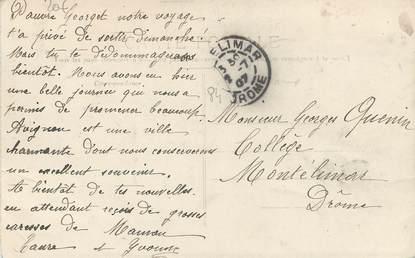 Pauvre Georget notre voyage
t'a privé de sortir dimanche.
Mais tu te dédommageras
bientôt. Nous avons eu hier
une belle journée qui nous a
permis de promener beaucoup.
Avignon est une ville
charmante dont nous conserverons
un excellent souvenir.
A bientôt de tes nouvelles.
en attendant reçois de grosses
caresses de Maman
Laure et Yvonne
ELIMAR
DROME
84
Monsieur Georges
Collège
Montélimar
Drôme